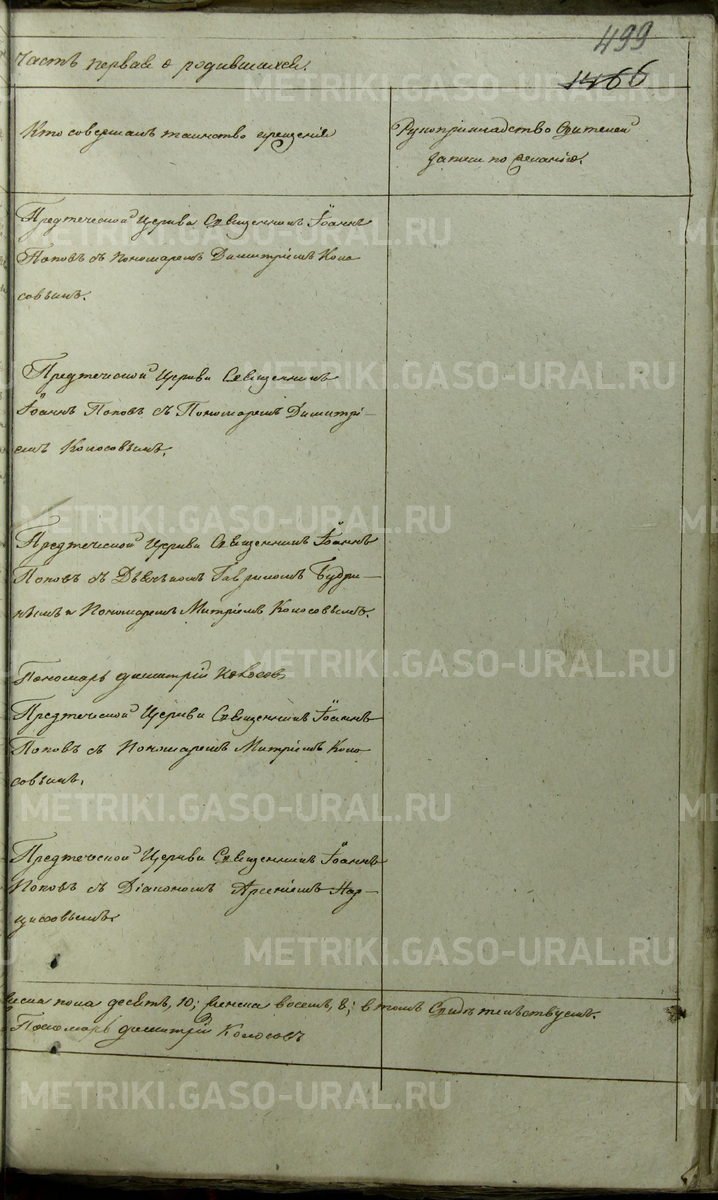 499
1466
Часть первая о родившихся.
Кто совершалъ таинство крещенія
Рукоприкладство Свидетелей
записи по желанію.
Предтеческой Церкви Священникъ Іоаннъ
Поповъ съ Пономаремъ Димитріемъ Коло
совымъ.
Предтеческой Церкви Священникъ
Іоаннъ Поповъ съ Пономаремъ Димитрі-
емъ Колосовымъ.
Предтеческой Церкви Священникъ Іоаннъ
Поповъ съ Дьячкомъ Гавриломъ Будри-
нымъ и Пономаремъ Митріемъ Колосовымъ.
Пономарь димитрій Колосов
Предтеческой Церкви Священникъ Іоаннъ
Поповъ съ Пономаремъ Митріемъ Коло
совымъ.
Предтеческой Церкви Священникъ Іоаннъ
Поповъ съ Діакономъ Арсеніемъ Нар-
циссовымъ.
пола десять, 10; женска восемь, 8; в томъ Свидѣтельствуемъ.
Пономарь димитрій Колосовъ
METRIKI.GASO-URAL.RU